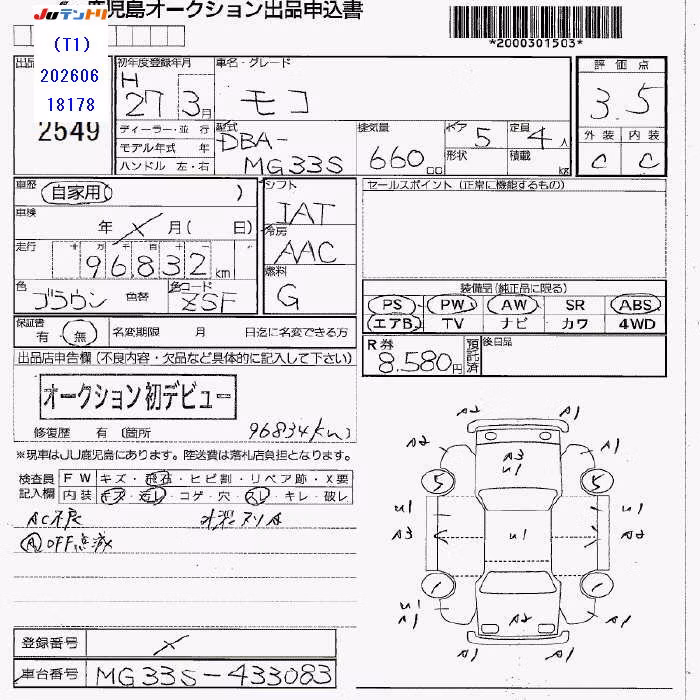 JUテントリ 鹿児島オークション出品申込書
(T1)
202606
18178
2549
*2000301503*
初年度登録年月
H
27 3月
車名・グレード
モコ
評価点
3.5
外装 内装
C C
ディーラー・並行
モデル年式 年
ハンドル 左・右
型式
DBA-
MG33S
排気量
660 cc
ドア 5
形状
定員 4人
積載 kg
車歴 自家用 )
車検 年 × 月( 日)
走行 十 万 千 百 十 一
96832 km
色 ブラウン 色替 色コード ZSF
シフト
IAT
冷房
AAC
燃料
G
セールスポイント (正常に機能するもの)
装備品(純正品に限る)
PS PW AW SR ABS
エアB TV ナビ カワ 4WD
保証書 有 無 名変期限 月 日迄に名変できる方
R券
8.580円
預託済
後日品
出品店申告欄(不良内容・欠品など具体的に記入して下さい)
オークション初デビュー
修復歴 有 (箇所 96834km)
※現車はJU鹿児島にあります。陸送費は落札店負担となります。
検査員記入欄
FW キズ・飛石・ヒビ割・リペア跡・X要
内装 キズ・汚レ・コゲ・穴・スレ・キレ・破レ
AC不良
A OFF点滅
A2 A1
A2 A1
A3
U1
5 5
U1 U1
A3 A2
U1
1 1
U1
A1 A2 A1
A1
登録番号 ×
車台番号 MG33S-433083